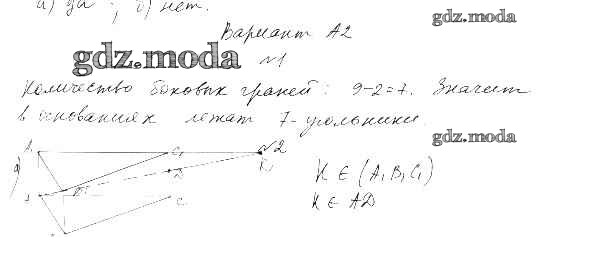 а) да ; б) нет.
gdz.moda
Вариант А2
gdz.moda
№1
Количество боковых граней: 9-2=7. Значит
в основаниях лежат 7-угольники.
gdz.moda
№2
а)
A₁ C₁ K
B₁ D
C
K ∈ (A₁B₁C₁)
K ∈ AD